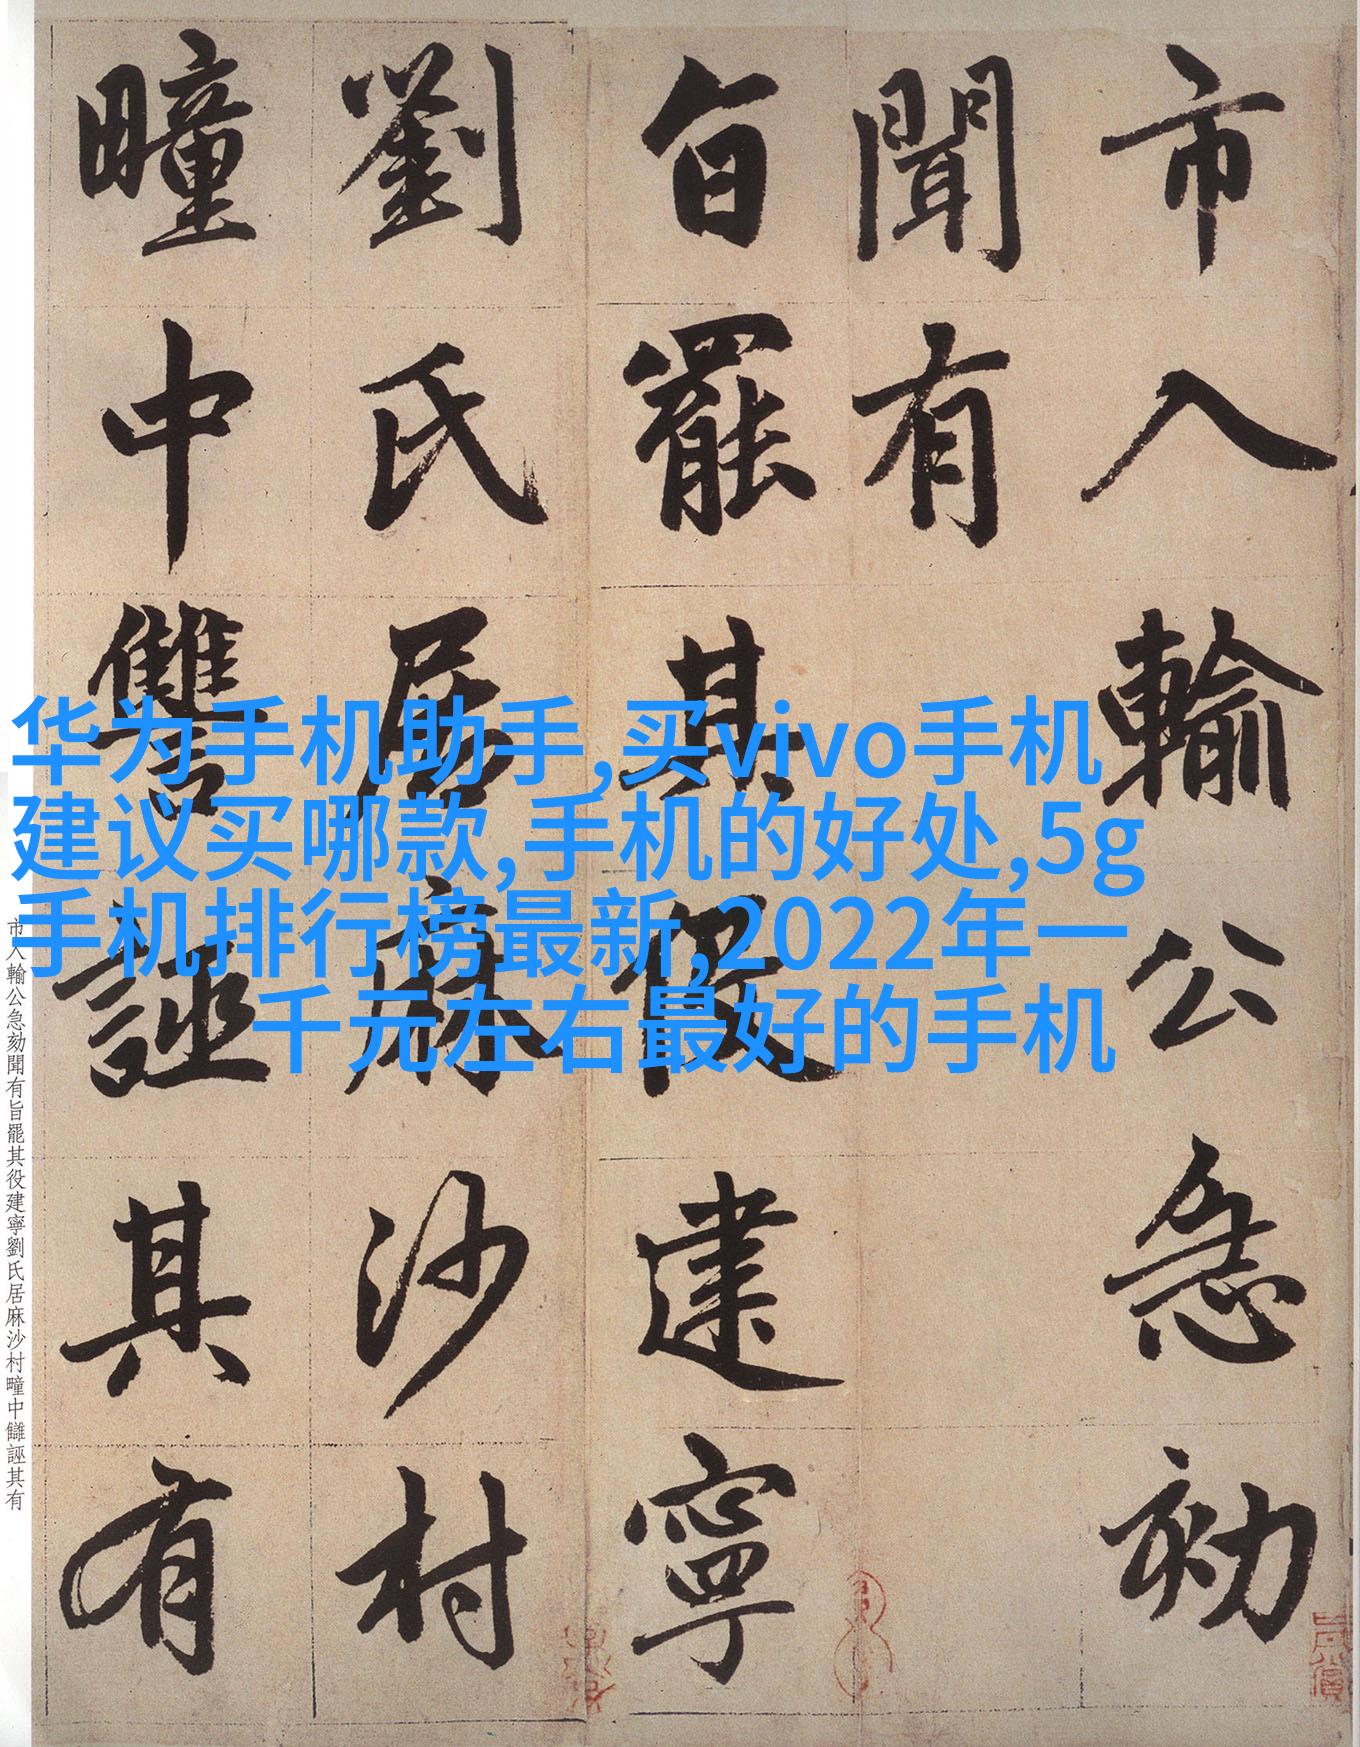 市入輸公急劾
聞有
旨罷其役建寧
劉氏居麻沙村
疃中讐誣其有
华为手机助手,买vivo手机
建议买哪款,手机的好处,5g
手机排行榜最新,2022年一
千元左右最好的手机
市入輸公急劾聞有旨罷其役建寧劉氏居麻沙村疃中讎誣其有